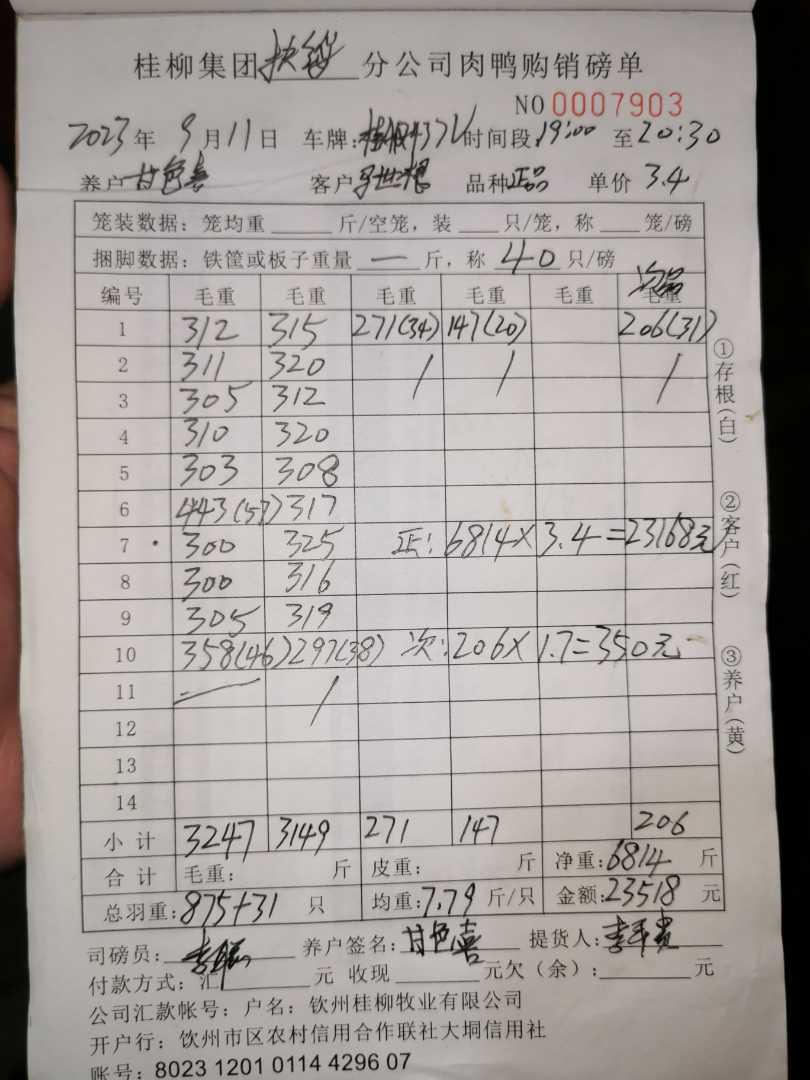 桂柳集团 分公司肉鸭购销磅单
NO 0007903
2023年 9月11日 车牌: 时间段:19:00 至20:30
养户 甘色喜 客户 品种 正品 单价 3.4
笼装数据: 笼均重 斤/空笼, 装 只/笼, 称 笼/磅
捆脚数据: 铁筐或板子重量 — 斤, 称 40 只/磅
编号 毛重 毛重 毛重 毛重 毛重 毛重 次品
1 312 315 271(34) 147(20) 206(31)
2 311 320 / / /
3 305 312
4 310 320
5 303 308
6 443(57) 317
7 300 325 正: 6814×3.4=23168元
8 300 316
9 305 319
10 358(46) 297(38) 次: 206×1.7=350元
11 — /
12
13
14
小计 3247 3149 271 147 206
合计 毛重: 斤 皮重: 斤 净重:6814 斤
总羽重:875+31 只 均重:7.79 斤/只 金额:23518 元
司磅员: 养户签名:甘色喜 提货人:李平贵
付款方式:汇 元 收现 元欠(余): 元
公司汇款帐号: 户名: 钦州桂柳牧业有限公司
开户行: 钦州市区农村信用合作联社大垌信用社
账号: 8023 1201 0114 4296 07
①存根(白)
②客户(红)
③养户(黄)